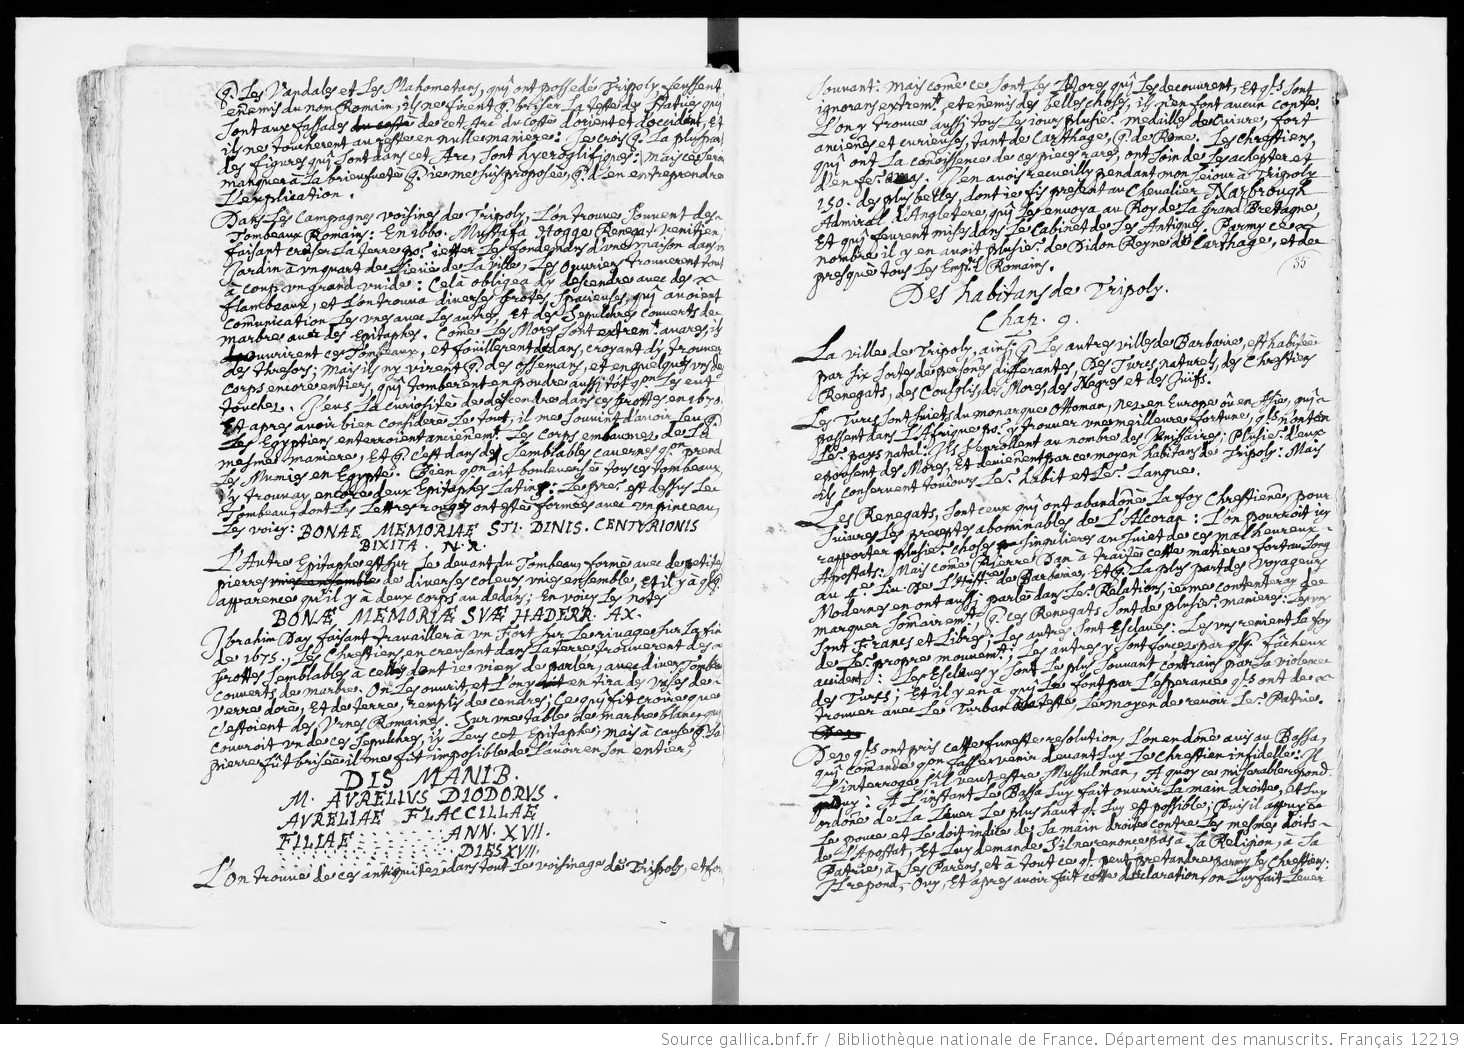 q. Les Vandales et Les Mahometans, qui ont possedé Tripoly fussent
enemis du nom Romain, ils ne firent q. briser La teste des statües qui
sont aux fassades de cet Arc du Costé d'orient et d'occident, Et
ils ne toucherent au reste en nulle maniere: Je crois q. La pluspart
des figures qui sont dans cet Arc, sont hyeroglifiques: mais ce seroit
manquer à La briefueté q. ie me suis proposée q. d'en entreprendre
L'explication.
Dans Les Campagnes voisines de Tripoly, L'on trouve souvent des
Tombeaux Romains: En 1660. Mustafa Hogge Renegat venitien
faisant creuser La terre po.r ietter Les fondemans d'une maison dans un
Jardin à un quart de Lieüe de La ville, Les Ouvriers trouverent tout
à coup un grand vuide: Celà obligea d'y descendre avec des
flambeaux, et L'on trouva diverses Grotes spacieuses, qui avoient
comunication Les unes avec Les autres, Et des Sepulchres couverts de
marbre avec des Epitaphes. Come Les Mores sont extrem.t avares, ils
ouvrirent ces Tombeaux, et foüillerent dedans, croyant d'y trouver
des thresors; Mais ils n'y virent q. des ossemans, et en quelques uns des
Corps encore entiers, qui tomberent en poudre aussitôt q.on Les eut
touchez. J'eus La curiosité de descendre dans ces Grottes en 1670,
Et apres avoir bien consideré Le tout, il me souvint d'avoir Leu q.
Les Egyptiens enterroient ancienem.t Les corps embaumez de La
mesme maniere, Et q. c'est dans de semblables cavernes q.on prend
Les Mumies en Egypte. Bien q.on ait bouleversé tous ces tombeaux,
J'y trouvay encore deux Epitaphes Latins: Le pre.r est dessus Le
Tombeau, dont Les Lettres rouges ont esté formées avec un pinceau,
Les voicy: BONAE MEMORIAE STI. DINIS. CENTVRIONIS
BIXITA. N.R.
L'Autre Epitaphe est sur Le devant du Tombeau formé avec de petites
pierres de diverses coleurs unies ensemble, Et il y à q.q.
apparence qu'il y à deux corps au dedans; En voicy Les notes
BONÆ MEMORIÆ SVÆ HADERR. AX.
Ibrahim Day faisant travailler à un Fort sur Le rivage sur La fin
de 1675, Les Chrestiens en creusant dans La terre trouverent des
Grottes semblables à celles dont ie viens de parler, avec divers Tombeaux
couverts de marbre. On Les ouvrit et L'on en tira des vases de
verre doré, Et de terre, remplis de cendres; Ce qui fit croire que
c'estoient des Urnes Romaines. Sur une table de marbre blanc, qui
couvroit un de ces Sepulchres, i'y Leus cet Epitaphe; mais à cause q. La
pierre fût brisée il me fut impossible de L'avoir en son entier;
DIS MANIB.
M. AVRELIVS DIODORVS.
AVRELIAE FLACCILLAE
FILIAE . . . . . . . . ANN. XVII.
. . . . . . . . . . . DIES XVII.
L'On trouve de ces antiquitez dans tout Le voisinage de Tripoly, et fort
souvant: Mais come ce sont Les Mores qui Les decouvrent, Et q.ls sont
ignorans extrem.t, et enemis des belles choses, ils n'en font aucun conte.
L'on y trouve aussi tous Les iours plusie.s medailles de cuivre, fort
ancienes et curieuses, tant de Carthage, q. de Rome. Les Chrestiens,
qui ont La conoissence de ces pieces rares, ont soin de Les achepter et
d'en fe.r amas. J'en avois recueilly pendant mon seiour à Tripoly
250. des plus belles, dont ie fis present au Chevalier Narbrough
Admiral d'Angleterre, qui Les envoya au Roy de La Grand Bretagne,
Et qui furent mises dans Le Cabinet de Ses Antiques. Parmy ce
nombre il y en avoit plusie.s de Didon Reyne de Carthage, et de
presque tous Les Emp.rs Romains.
35
Des habitans de Tripoly.
Chap. 9.
La ville de Tripoly, ainsi q. Les autres villes de Barbarie, est habitée
par six sortes de persones differantes, Des Turcs naturels, des Chrestiens
Renegats, des Coulolis, des Mores, des Negres et des Juifs.
Les Turcs sont suiets du monarque Ottoman, Nez en Europe où en Asie, qui
passent dans L'Afrique po.r y trouver une meilleure fortune, q.ls n'ont en
Le.r pays natal: Ils s'enrollent au nombre des Janissaires; Plusie.s d'eux
epousent des Mores, Et devienent par ce moyen habitans de Tripoly: Mais
ils conservent touiours Le.r habit et Le.r Langue.
Les Renegats, sont ceux qui ont abandoné La foy Chrestiene, pour
suivre Les preceptes abominables de L'Alcoran: L'on pourroit icy
rapporter plusie.s choses singulieres au suiet de ces malheureux
Apostats: Mais come Pierre Dan à traité cette matiere fort au Long
au 4.e Liv. de L'Hist.re de Barbarie, Et q. La plus part des voyageurs
Modernes en ont aussi parlé dans Le.s Relations, ie me contenteray de
marquer somairem.t q. ces Renegats sont de plusie.s manieres: Les uns
sont Francs et Libres; Les autres sont Esclaves: Les uns renient La foy
de Le.r propre mouvem.t; Les autres y sont forcez par q.q. fâcheux
accident: Les Esclaves y sont Le plus souvant contrains par La violence
des Turcs; Et il y en à qui Le font par L'esperance q.ls ont de
trouver avec Le Turban Le moyen de revoir Le.r Patrie.
Dez q.ls ont pris cette funeste resolution, L'on en done avis au Bassa,
qui comande q.on fasse venir devant Luy Le Chrestien infidelle: Il
L'interroge s'il veut estre Mussulman, A quoy ce miserable repond
Ouy: A L'instant Le Bassa Luy fait ouvrir La main droite, et Luy
ordone de La Lever Le plus haut q.l Luy est possible; Puis il appuye
Le pouce et Le doit indice de sa main droite contre Les mesmes doits
de L'Apostat, Et Luy demande s'il ne renonce pas à sa Religion, à sa
Patrie, à ses Parens, et à tout ce q.l peut pretandre parmy Les Chrestiens:
Il repond, Ouy, Et apres avoir fait cette declaration, on Luy fait Lever
Source gallica.bnf.fr / Bibliothèque nationale de France. Département des manuscrits. Français 12219